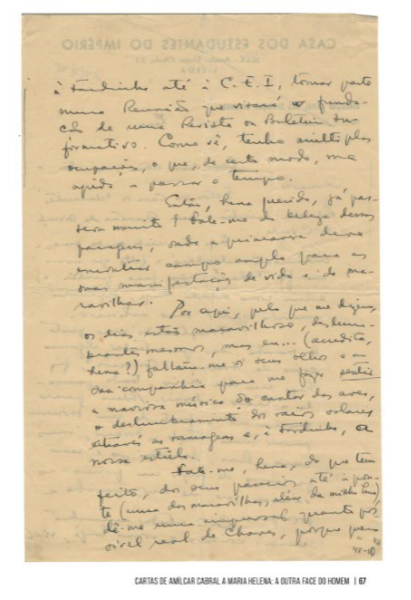 CASA DOS ESTUDANTES DO IMPÉRIO
à tardinha até à C.E.I, tomar parte
numa Reunião que visará a funda-
ção de uma Revista ou Boletim In-
formativo. Como vê, tenho multiplas
ocupações, o que, de certo modo, me
ajuda a passar o tempo.
Então, Lena querida, já pas-
seou muito? Fale-me da beleza dessas
paisagens, onde a primavera deve
encontrar campo amplo para as
suas manifestações de vida e de ma-
ravilhas.
Por aqui, pelo que me dizem,
os dias estão maravilhosos, deslum-
brantes mesmos, mas eu... (acredita,
Lena?) faltam-me os seus olhos e a
sua companhia para me fazer sentir
a maviosa música do cantar das aves,
o deslumbramento dos raios solares
através as ramagens e, à tardinha, a
noise estilo.
Fale-me, Lena, do que tem
feito, dos seus passeios até à pon-
te (uma das maravilhas, além da minha Lena),
dê-me uma impressão, quanto pos-
sivel real de Chaves, porque quero
CARTAS DE AMÍLCAR CABRAL A MARIA HELENA: A OUTRA FACE DO HOMEM | 67